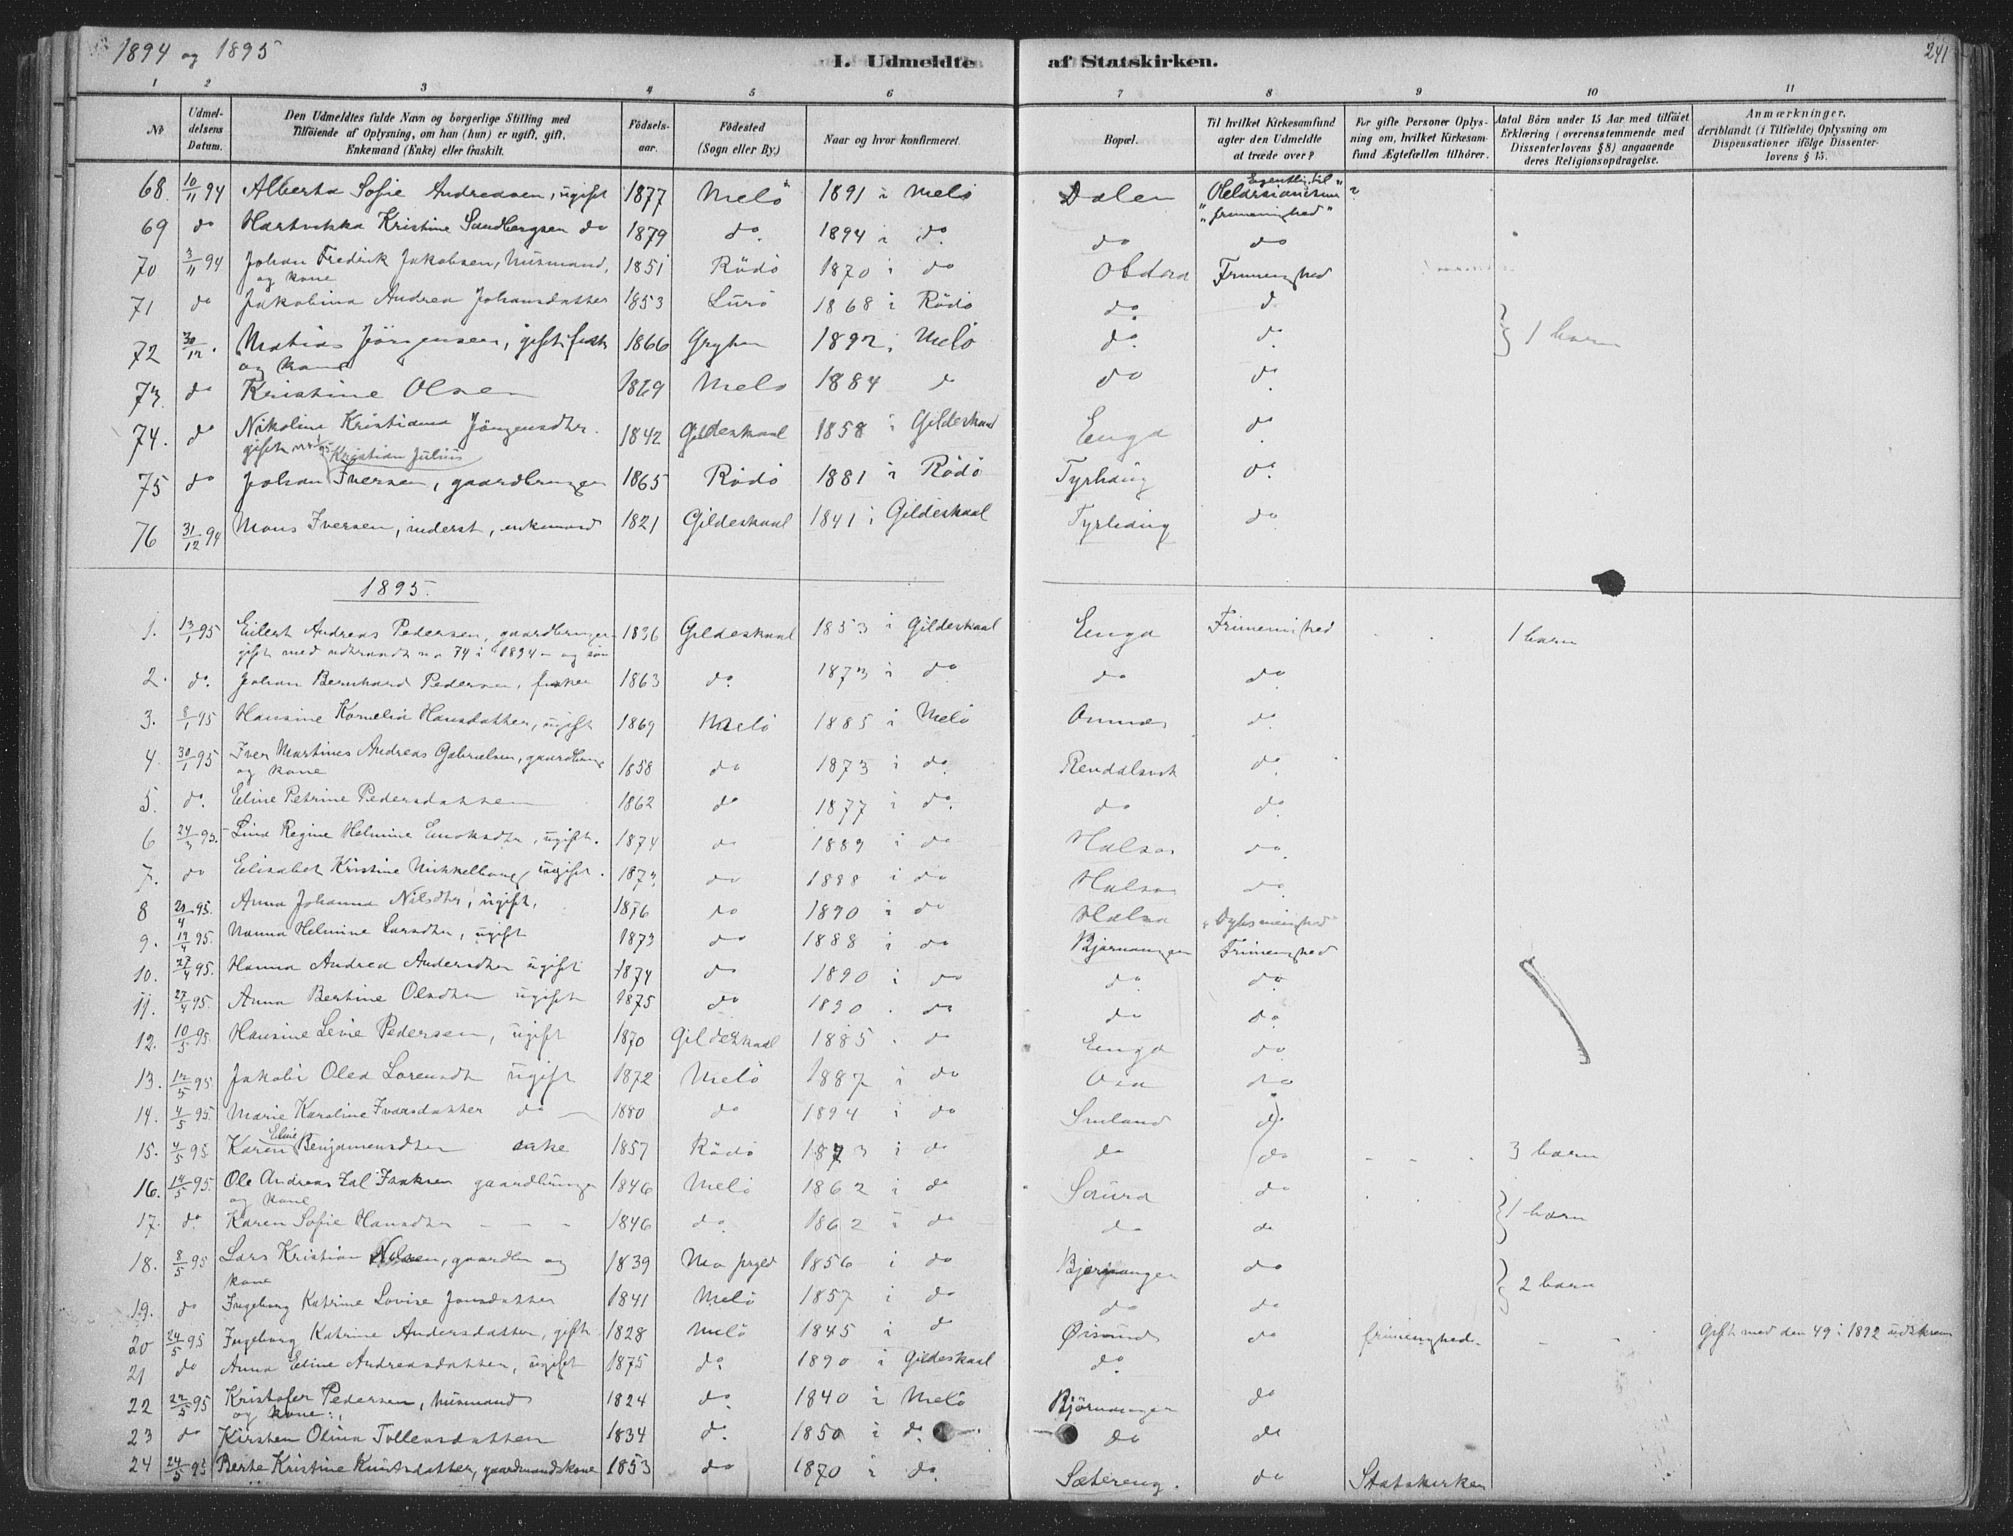 1894 og 1895
241
I. Udmeldte af Statskirken.
1 2 3 4 5 6 7 8 9 10 11
No
Udmel-
delsens
Datum.
Den Udmeldtes fulde Navn og borgerlige Stilling med
Tilföiende af Oplysning, om han (hun) er ugift, gift,
Enkemand (Enke) eller fraskilt.
Födsels-
aar.
Födested
(Sogn eller By.)
Naar og hvor konfirmeret.
Bopæl.
Til hvilket Kirkesamfund
agter den Udmeldte
at træde over?
For gifte Personer Oplys-
ning om, hvilket Kirkesam-
fund Ægtefællen tilhörer.
Antal Börn under 15 Aar med tilföiet
Erklæring (overensstemmende med
Dissenterlovens § 8) angaaende
deres Religionsopdragelse.
Anmærkninger,
deriblandt (i Tilfælde) Oplysning om
Dispensationer ifölge Dissenter-
lovens § 15.
Egentlig til
68. 10/11 94 Alberta Sofie Andreasen, ugift 1877 Melö 1891 i Melö Dalen ?
"frimenighed"
69 do Hartvikka Kristine Sandbergsen do 1879 do. 1894 i do. do do
70 3/11 94 Johan Fredrik Jakobsen, husmand, 1851 Rödö 1870 i do Frimenighed
og kone
71 do Jakobina Andrea Johansdatter 1853 Lurö 1868 i Rödö do d.
72 30/12. Matias Jörgensen, gift 1866 1892 i Melö do. do. } 1 barn
og kone
73. do Kristine Olsen 1869 Melö 1884 do do do.
74. do Nikoline Kristiana Jörgensdter. 1842 Gildeskaal 1858 i Gildeskaal Enga do.
gift Kristian Julius
75 do Johan Iversen, gaardbruger 1865 Rödö 1881 i Rödö do.
76 31/12 94 Mons Iversen, inderst, enkemand 1821 Gildeskaal 1841 i Gildeskaal do
1895.
1. 13/1 95 Eilert Andreas Pedersen, gaardbruger 1836 Gildeskaal 1853 i Gildeskaal Enga Frimenighed 1 barn
gift med udtraadt no 74 i 1894 – og sön
2. do. Johan Bernhard Pedersen, fisker 1863 do. 1873 i do. do do.
3. 8/1 95 Hansine Kornelia Hansdatter, ugift 1869 Melö 1885 i Melö do.
4. 30/1 95 Iver Martines Andreas Gabrielsen, gaardbrug 1858 do 1873 i do. do.
og kone
5. do. Eline Petrine Pedersdatter 1862 do 1877 i do. do do.
6 24/3 95. Lina Regine Helmine Enoksdtr, ugift. 1874 do 1889 i do do.
7. do Elisabet Kristine ugift. 1873 do 1888 i do do.
8 95. Anna Johanna Nilsdtr, ugift. 1876 do 1890 i do Halsa
9. 19/4 95. Hanna Helmine Larsdtr, ugift 1873 do 1888 i do Frimenighed
10. 27/4 95. Hanna Andrea Andersdtr ugift 1874 do 1890 i do do. do.
11. 27/4 95. Anna Bertine Olsdtr ugift 1875 do 1890 . do do do.
12. 10/5 95. Hansine Pedersen, ugift 1870 Gildeskaal 1885 . do Enga do.
13. 12/5 95 Olea Lorensdtr ugift 1872 Melö 1887 i do do
14. 4/5 95. Marie Karoline Ivarsdatter do – 1880 do 1894 i do do
Eline
15. 4/5 95. Karen Benjamensdtr enke 1857 Rödö 1873 i do do do - - - 3 barn
16. 14/5 95. Ole Andreas Isaksen gaardbruger 1846 Melö 1862 i do do } 1 barn
og kone
17. do. Karen Sofie Hansdtr - - - 1846 do. 1862 i do do do
18. 8/5 95 Lars Kristian Nilsen, gaardbr og 1839 Mo prgld 1856 i do do } 2 barn
kone
19. do Ingeborg Katrine Lovise Jonsdatter 1841 Melö 1857 i do do do
20 24/5 95 Ingeborg Katrine Andersdatter, gift 1828 Melö 1845 i do Øisund do frimenighed. – - Gift med den 49 i 1892 udskrevn
21 do Anna Eline Andreasdatter, ugift 1875 do. 1890 i Gildeskaal do.
22 22/5 95 Kristofer Pedersen, husmand 1824 do. 1840 i Melö do
og kone:,
23 do Kirsten Olina Tollersdatter 1834 do. 1850 i do. do do
24 24/5 95 Berte Kristine Knutsdatter, gaardmandskone 1853 do 1870 i do. Sætereng. do Statskirken